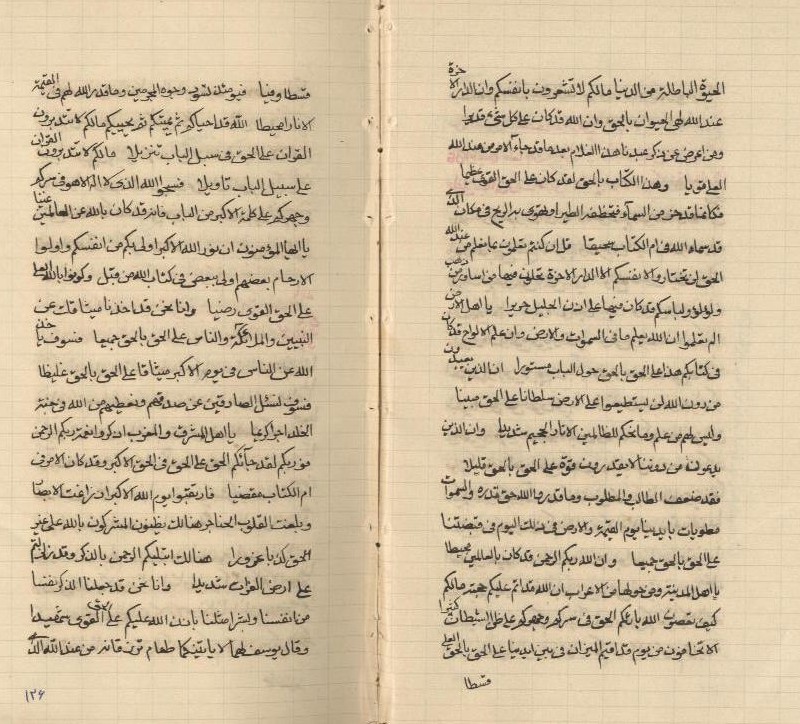 الحيوة الباطلة من الدنيا مالكم لا تشعرون بانفسكم وان الدار الاخرة
عند الله لهي الحيوان بالحق وان الله قد كان على كل شئ قديرا
ومن اعرض عن ذكر عبدنا هذا الغلام بعد ما قد جاء الامر من عند الله
العلي وهذا الكتاب بالحق لقد كان على الحق القوي عظيما
فكانما قد خر من السماء فتخطفه الطير او تهوي به الريح في مكان الذي
قد سماه الله في ام الكتاب سحيقا قل ان كنتم تقلدون عند الله
الحق ان تختاروا لانفسكم الا الدار الاخرة تحلون فيها من اساور من ذهب
ولؤلؤ ولباسكم قد كان فيها على اذن الجليل حريرا يا اهل الارض
الم تعلموا ان الله يعلم ما في السموات والارض وان علم الالواح قد كان
في كتابكم هذا على الحق بالحق حول الباب مستورا ان الذين يعبدون
من دون الله لن يستطيعوا على الارض سلطانا على الحق مبينا
وليس لهم من علم وما نحكم للظالمين الا نار الجحيم شديدا وان الذين
يدعون من دوننا لا يقدرون قوة على الحق بالحق قليلا
فقد ضعف الطالب والمطلوب وما قدروا الله حق قدره والسموات
مطويات بايدينا يوم القيمة والارض في ذلك اليوم في قبضتنا
على الحق بالحق جميعا وان الله ربكم الرحمن قد كان بالعالمين محيطا
يا اهل المدينة ومن حولها من الاعراب ان الله قد اتم عليكم حجته مالكم
كيف تعصون الله بارئكم الحق في سركم وجهركم على ظل الشيطان كثيرا
الا تخافون من يوم قد اقيم الميزان في بين ايدينا على الحق بالحق العلي
قسطا
قسطا وفيا فيومئذ تسود وجوه المجرمين وما قدر الله لهم في القيمة
الا نارا محيطا الله قد احياكم ثم يميتكم ثم يحييكم مالكم لا تتدبرون
القران على الحق في سبيل الباب تنزيلا مالكم لا تتدبرون القران
على سبيل الباب تاويلا فسبحوا الله الذي لا اله الا هو في سركم
وجهركم على كلمة الاكبر من الباب فانه قد كان بالله عن العالمين غنيا
يا ايها المؤمنون ان نور الله الاكبر اولى بكم من انفسكم واولوا
الارحام بعضهم اولى ببعض في كتاب الله من قبل وكونوا بالله العلي
على الحق القوي رضيا وانا نحن قد اخذنا ميثاقك عن
النبيين والملائكة والناس على الحق بالحق جميعا فسوف ياخذ
الله عن الناس في يوم الاكبر ميثاقا على الحق بالحق غليظا
فسوف نسئل الصادقين عن صدقهم ونعطيهم من الله في جنة
الخلد اجرا كريما يا اهل المشرق والمغرب اذكروا نعمة ربكم الرحمن
فوربكم لقد جائكم الحق على الحق في الحق الاكبر وقد كان الامر في
ام الكتاب مقضيا فارتقبوا يوم الله الاكبر ان زاغت الابصار
وبلغت القلوب الحناجر هنالك يظنون المشركون بالله على غير
الحق كذبا غرورا هنالك ابتليكم الرحمن بالذكر وقد زلزلتم
على ارض الفؤاد شديدا وانا نحن قد جعلنا الذكر نفسا
من انفسنا وبشرا مثلنا باذن الله عليكم على الحق القوي شهيدا
وقال يوسف لهما لا ياتيكما طعام ترزقانه من عند الله الذي
١٢٦